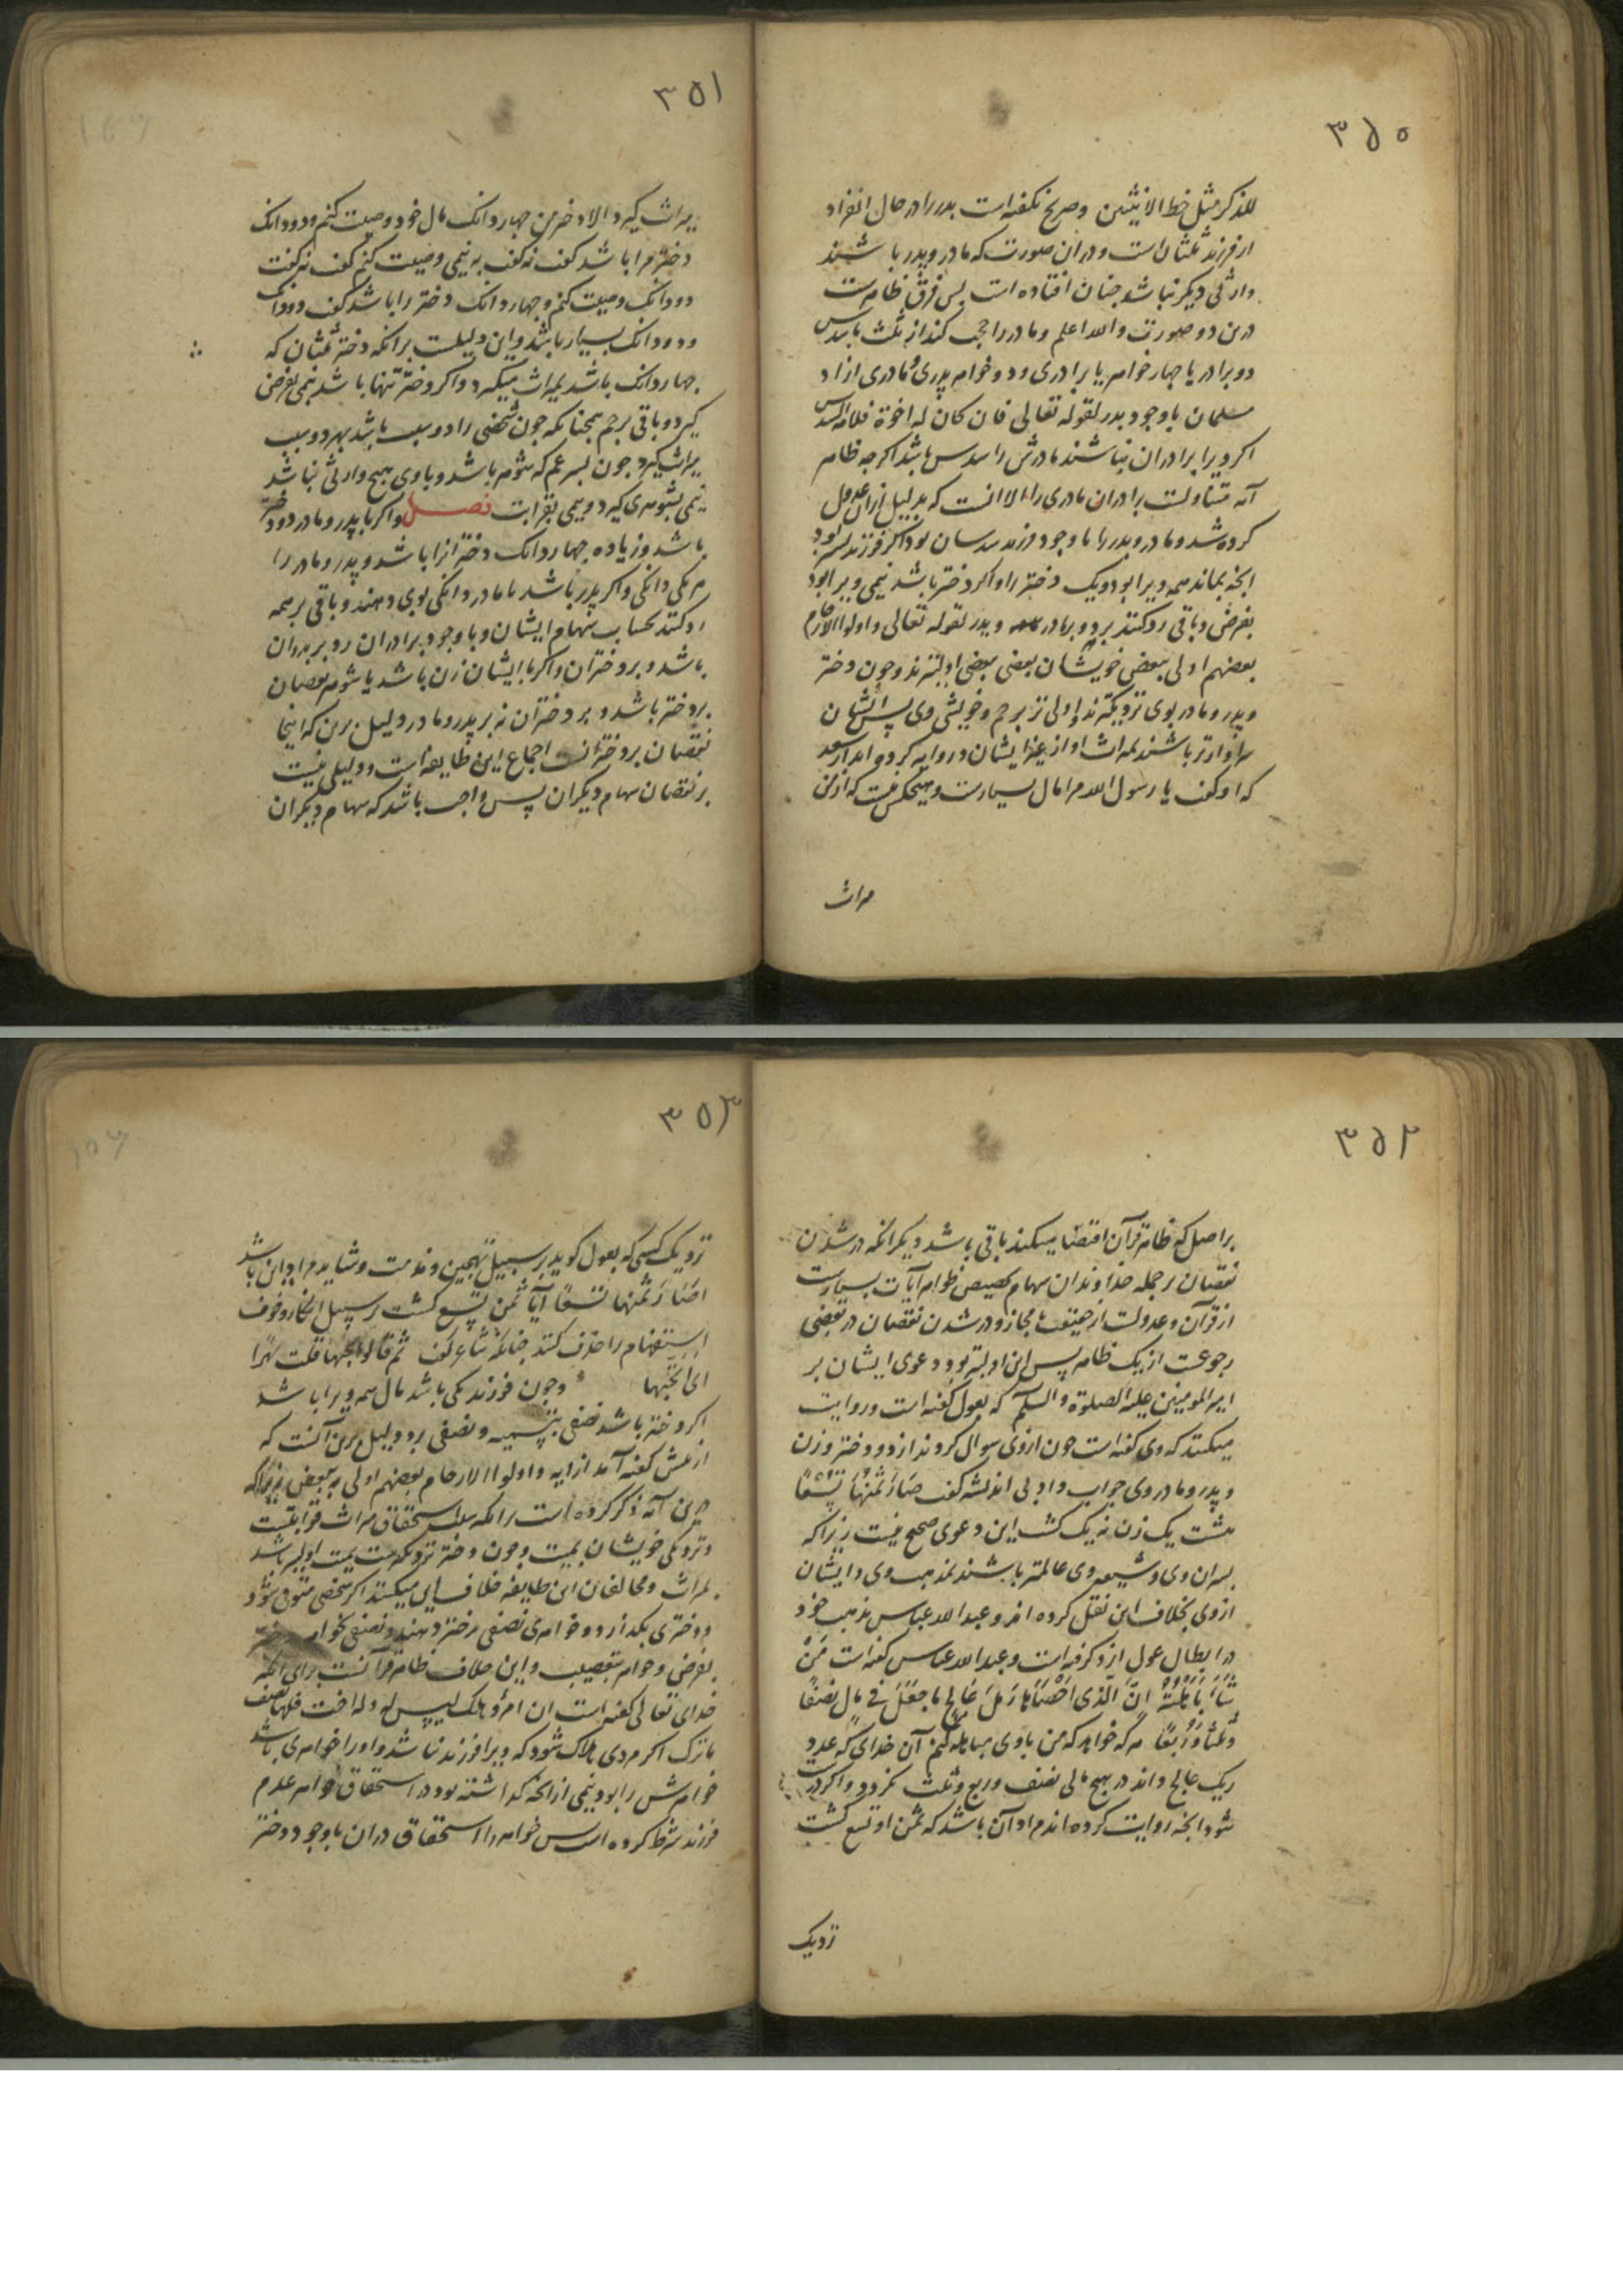 ٣٥٠
للذکر مثل حظ الانثیین وصریح نکفته است بدر را در حال انفراد
از فرزند ثلثان است و در ان صورت که مادر و پدر باشند
وارثی دیکر نباشد جنان افتاده است بس فرق ظاهرست
درین دو صورت والله اعلم و مادر را حجب کند از ثلث با سدس
دو برادر یا جهار خواهر یا برادری و دو خواهر پدری و مادری ازاد
مسلمان با وجود بدر لقوله تعالی فان کان له اخوة فلامه السدس
اکر ویرا برادران نباشند مادرش را سدس باشد اکرجه ظاهر
آیه متناولست برادران مادری را الا انست که بدلیل ازان عدول
کرده شد و مادر و بدر را با وجود فرزند سدسان بود اکر فرزند پسر بود
انجه بماند همه ویرا بود و یک دختر را و اکر دختر باشد نیمی ویرا بود
بفرض و باقی رد کنند برو و بر مادر و پدر لقوله تعالی و اولوا الارحام
بعضهم اولی ببعض خویشان بعضی ببعضی اولیترند و چون دختر
و پدر و مادر بوی نزدیکترند و اولی تر برحم و خویشی وی پس ایشان
سزاوارتر باشند بمیراث او از غیر ایشان و روایه کرده اند از سعد
که او کفت یا رسول الله مرا مال بسیارست و هیچکس نیست که از من
میراث
٣٥١
میراث کیرد الا دختر من جهار دانک مال خود وصیت کنم و دو دانک
دختر مرا باشد کفت نه کفت به نیمی وصیت کنم کفت نه کفت
دو دانک وصیت کنم و جهار دانک دختر را باشد کفت دو دانک
و دو دانک بسیار باشد و این دلیلست بر انکه دختر ثلثان که
جهار دانک باشد بمیراث میکیرد و اکر دختر تنها باشد نیمی بفرض
کیرد و باقی برحم همجنانکه جون شخصی را دو سبب باشد بهر دو سبب
میراث کیرد جون بسر عم که شوهر باشد و با وی هیچ وارثی نباشد
نیمی بشوهری کیرد و نیمی بقرابت فصل و اکر با پدر و مادر دو دختر
باشد و زیاده جهار دانک دخترانرا باشد و پدر و مادر را
هر یکی دانکی و اکر پدر باشد یا مادر دانکی بوی دهند و باقی بر همه
رد کنند بحساب سهام ایشان و با وجود برادران رد بر بدران
باشد و بر دختران و اکر با ایشان زن باشد یا شوهر نقصان
بر دختر باشد و بر دختران نه بر پدر و مادر و دلیل برین که اینجا
نقصان بر دخترانست اجماع این طایفه است و دلیلی نیست
بر نقصان سهام دیکران پس واجب باشد که سهام دیکران
٣٥٢
بر اصل که ظاهر قرآن اقتضا میکند باقی باشد دیکر انکه در شدن
نقصان بر جمله خداوندان سهام تخصیص ظواهر آیات بسیارست
از قرآن و عدولست از حقیقت با مجاز و در شدن نقصان در بعضی
رجوعت از یک ظاهر پس این اولیتر بود و دعوی ایشان بر
امیر المومنین علیه الصلوة والسلم که بعول کفته است و روایت
میکنند که وی کفته است جون از وی سوال کردند از دو دختر و زن
و پدر و مادر وی جواب داد بی اندیشه کفت صَارَ ثُمْنُهَا تُسْعًا
هشت یک زن نه یک کشت این دعوی صحیح نیست زیرا که
بسران وی و شیعه وی عالمتر باشند بمذهب وی و ایشان
از وی بخلاف این نقل کرده اند و عبدالله عباس مذهب خود
در ابطال عول ازو کرفته است و عبدالله عباس کفته است مَنْ
شَاءَ بَاهَلْتُهُ اِنَّ الَّذی اَحْصَی رَمْلَ عَالِجٍ مَا جَعَلَ فی مالٍ نِصْفًا
و ثلثا و ربعا هر که خواهد که من با وی مباهله کنم آن خدای که عدد
ریک عالج داند در هیچ مالی نصف و ربع و ثلث نکردد و اکر درست
شود انجه روایت کرده اند مراد آن باشد که ثمن او تسع کشت
نزدیک
٣٥٣
نزدیک کسی که بعول کوید بر سبیل تهجین و مذمت و شاید مراد ان باشد
اصَارَ ثُمنها تسعًا آیا ثمن تسع کشت بر سبیل انکار و حرف
استفهام را حذف کنند جنانکه شاعر کفت ثم قالوا تحبها قلت بهرًا
ای اتحبها و جون فرزند یکی باشد مال همه ویرا باشد
اکر دختر باشد نصفی بتسمیه و نصفی برد و دلیل برین آنست که
از پیش کفته آمد از ایه و اولوا الارحام بعضهم اولی ببعض زیرا که
درین آیه ذکر کرده است برانکه سبب استحقاق میراث قرابتست
و نزدیکی خویشان بمیت و جون دختر نزدیکترست بمیت اولیتر باشد
بمیراث و مخالفان این طایفه خلاف این میکنند اکر شخصی متوفی شود
و دختری بکذارد و خواهری نصفی بدختر دهند و نصفی بخواهر
بفرض و خواهر بتعصیب و این خلاف ظاهر قرآنست برای انکه
خدای تعالی کفته است ان امرؤ هلک لیس له ولد و له اخت فلها نصف
ما ترک اکر مردی هلاک شود که ویرا فرزند نباشد و او را خواهری باشد
خواهرش را بود نیمی از انجه کذاشته بود در استحقاق خواهر عدم
فرزند شرط کرده است بس خواهر را استحقاق دران با وجود دختر